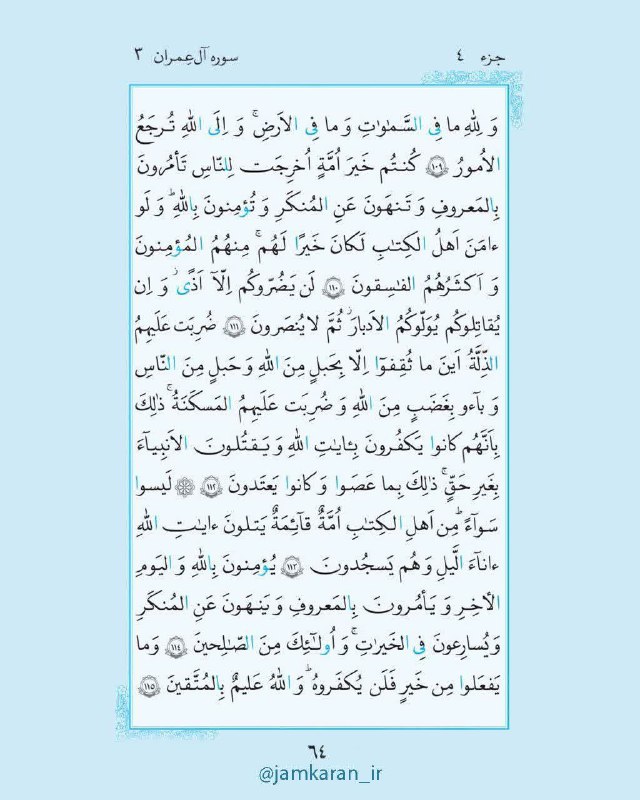 جزء ٤
سوره آل‌عِمران ٣
وَ لِلّٰهِ ما فِی السَّمٰوٰتِ وَ ما فِی الاَرضِ ۚ وَ اِلَی اللهِ تُرجَعُ
الاُمورُ ﴿١٠٩﴾ کُنتُم خَیرَ اُمَّةٍ اُخرِجَت لِلنّاسِ تَأمُرونَ
بِالمَعروفِ وَ تَنهَونَ عَنِ المُنکَرِ وَ تُؤمِنونَ بِاللهِ ۗ وَ لَو
ءامَنَ اَهلُ الکِتٰبِ لَکانَ خَیرًا لَهُم ۚ مِنهُمُ المُؤمِنونَ
وَ اَکثَرُهُمُ الفٰسِقونَ ﴿١١٠﴾ لَن یَضُرّوکُم اِلّآ اَذًی ۖ وَ اِن
یُقاتِلوکُم یُوَلّوکُمُ الاَدبارَ ثُمَّ لا یُنصَرونَ ﴿١١١﴾ ضُرِبَت عَلَیهِمُ
الذِّلَّةُ اَینَ ما ثُقِفوٓا اِلّا بِحَبلٍ مِنَ اللهِ وَ حَبلٍ مِنَ النّاسِ
وَ بآءو بِغَضَبٍ مِنَ اللهِ وَ ضُرِبَت عَلَیهِمُ المَسکَنَةُ ۚ ذٰلِکَ
بِاَنَّهُم کانوا یَکفُرونَ بِـٔایٰتِ اللهِ وَ یَقتُلونَ الاَنبِیآءَ
بِغَیرِ حَقٍّ ۚ ذٰلِکَ بِما عَصَوا وَ کانوا یَعتَدونَ ﴿١١٢﴾ ۞ لَیسوا
سَوآءً ۗ مِن اَهلِ الکِتٰبِ اُمَّةٌ قآئِمَةٌ یَتلونَ ءایٰتِ اللهِ
ءانآءَ الَّیلِ وَ هُم یَسجُدونَ ﴿١١٣﴾ یُؤمِنونَ بِاللهِ وَ الیَومِ
الآخِرِ وَ یَأمُرونَ بِالمَعروفِ وَ یَنهَونَ عَنِ المُنکَرِ
وَ یُسارِعونَ فِی الخَیرٰتِ ۚ وَ اُولـٰئِکَ مِنَ الصّٰلِحینَ ﴿١١٤﴾ وَ ما
یَفعَلوا مِن خَیرٍ فَلَن یُکفَروهُ ۗ وَ اللهُ عَلیمٌ بِالمُتَّقینَ ﴿١١٥﴾
٦٤
@jamkaran_ir